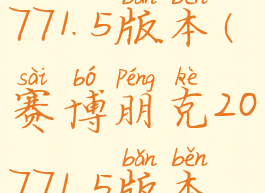 bǎn běn
771.5版本(
sài bó Péng kè
赛博朋克20
bǎn běn
771.5版本